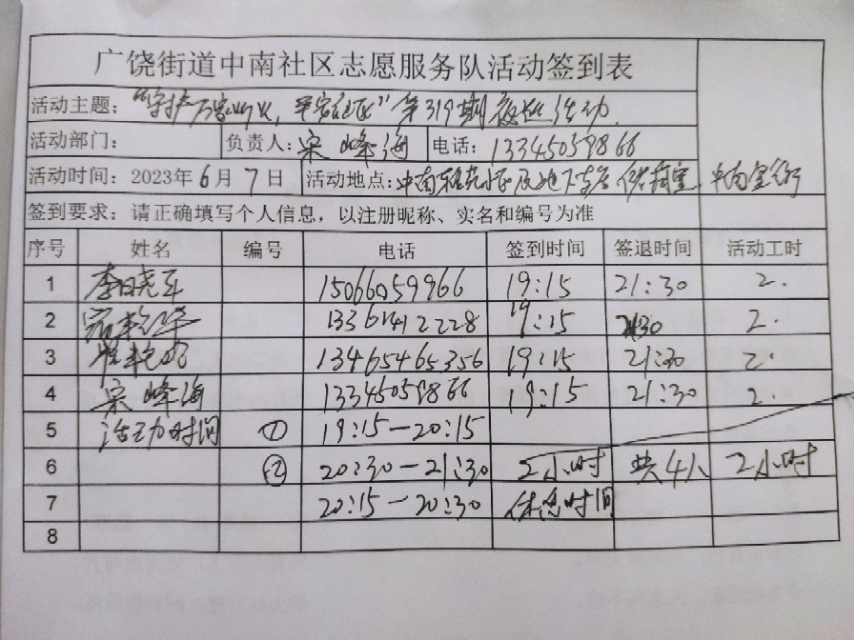 广饶街道中南社区志愿服务队活动签到表
活动主题：“守护万家灯火，平安社区”第319期夜巡活动
活动部门： 负责人：宋峰海 电话：13345059866
活动时间：2023年6月7日 活动地点：中南 小区及地下车
签到要求：请正确填写个人信息，以注册昵称、实名和编号为准
序号 姓名 编号 电话 签到时间 签退时间 活动工时
1 李晓军 15066059966 19:15 21:30 2.
2 13361412228 19:15 2.
3 13465465356 19:15 21:30 2.
4 宋峰海 13345059866 19:15 21:30 2.
5 活动时间 ① 19:15—20:15
6 ② 20:30—21:30 2小时 共4人 2小时
7 20:15—20:30 休息时间
8